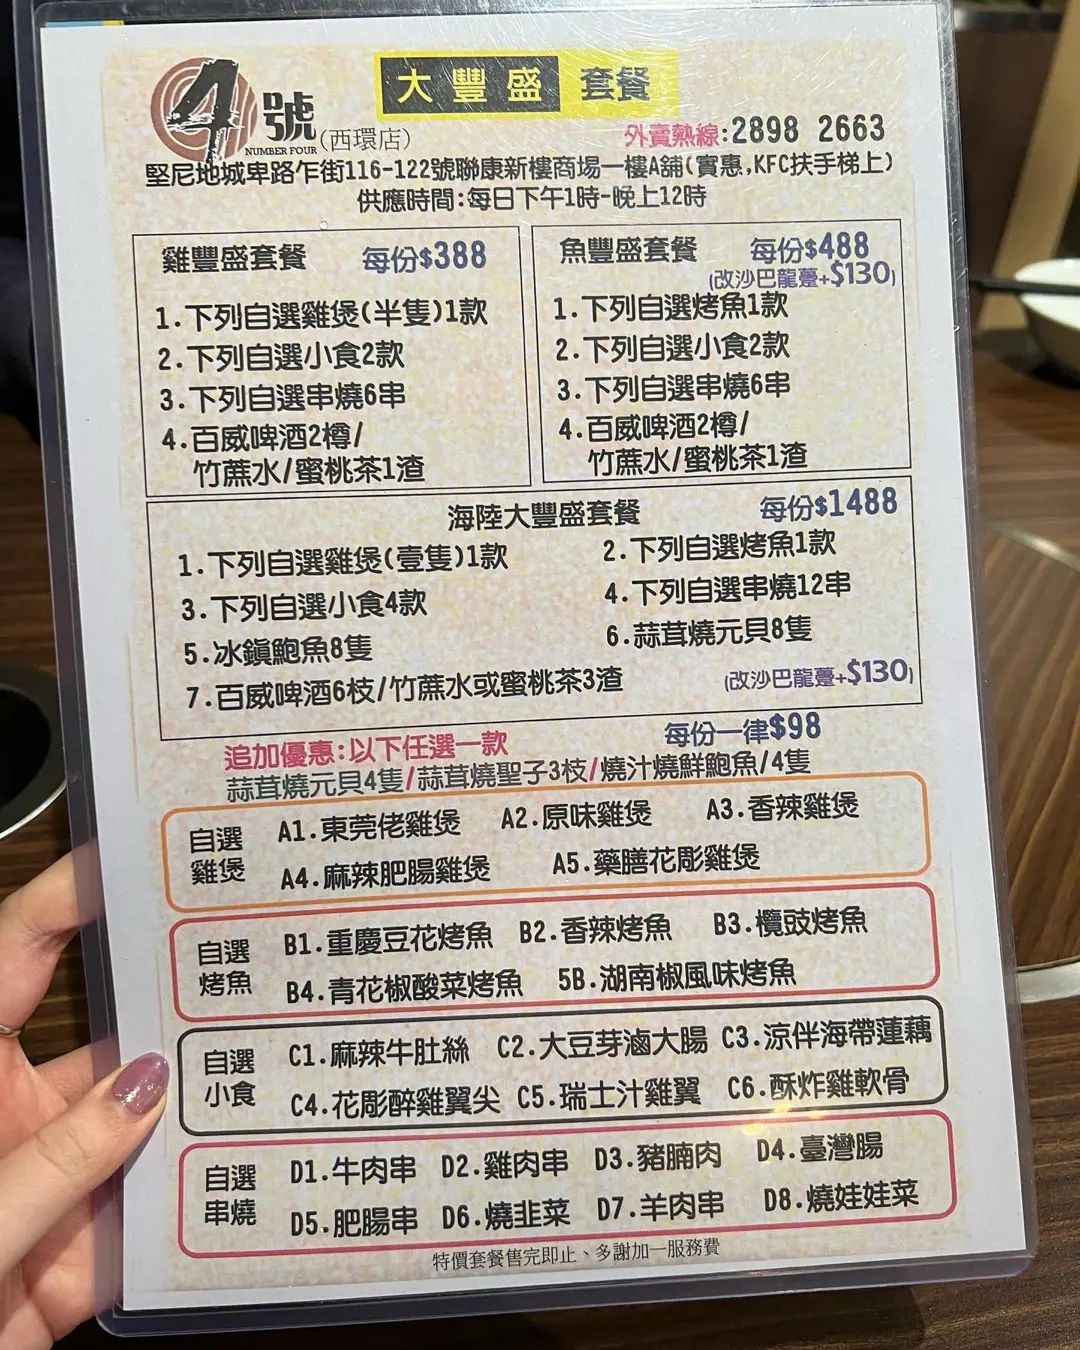 大豐盛 套餐
4號
NUMBER FOUR
(西環店)
外賣熱線:2898 2663
堅尼地城卑路乍街116-122號聯康新樓商場一樓A舖(實惠,KFC扶手梯上)
供應時間:每日下午1時-晚上12時
雞豐盛套餐 每份$388
1.下列自選雞煲(半隻)1款
2.下列自選小食2款
3.下列自選串燒6串
4.百威啤酒2樽/
竹蔗水/蜜桃茶1渣
魚豐盛套餐 每份$488
(改沙巴龍躉+$130)
1.下列自選烤魚1款
2.下列自選小食2款
3.下列自選串燒6串
4.百威啤酒2樽/
竹蔗水/蜜桃茶1渣
海陸大豐盛套餐 每份$1488
1.下列自選雞煲(壹隻)1款 2.下列自選烤魚1款
3.下列自選小食4款 4.下列自選串燒12串
5.冰鎮鮑魚8隻 6.蒜茸燒元貝8隻
7.百威啤酒6枝/竹蔗水或蜜桃茶3渣 (改沙巴龍躉+$130)
追加優惠:以下任選一款 每份一律$98
蒜茸燒元貝4隻/蒜茸燒聖子3枝/燒汁燒鮮鮑魚/4隻
自選
雞煲
A1.東莞佬雞煲 A2.原味雞煲 A3.香辣雞煲
A4.麻辣肥腸雞煲 A5.藥膳花彫雞煲
自選
烤魚
B1.重慶豆花烤魚 B2.香辣烤魚 B3.欖豉烤魚
B4.青花椒酸菜烤魚 5B.湖南椒風味烤魚
自選
小食
C1.麻辣牛肚絲 C2.大豆芽滷大腸 C3.涼伴海帶蓮藕
C4.花彫醉雞翼尖 C5.瑞士汁雞翼 C6.酥炸雞軟骨
自選
串燒
D1.牛肉串 D2.雞肉串 D3.豬腩肉 D4.臺灣腸
D5.肥腸串 D6.燒韭菜 D7.羊肉串 D8.燒娃娃菜
特價套餐售完即止、多謝加一服務費